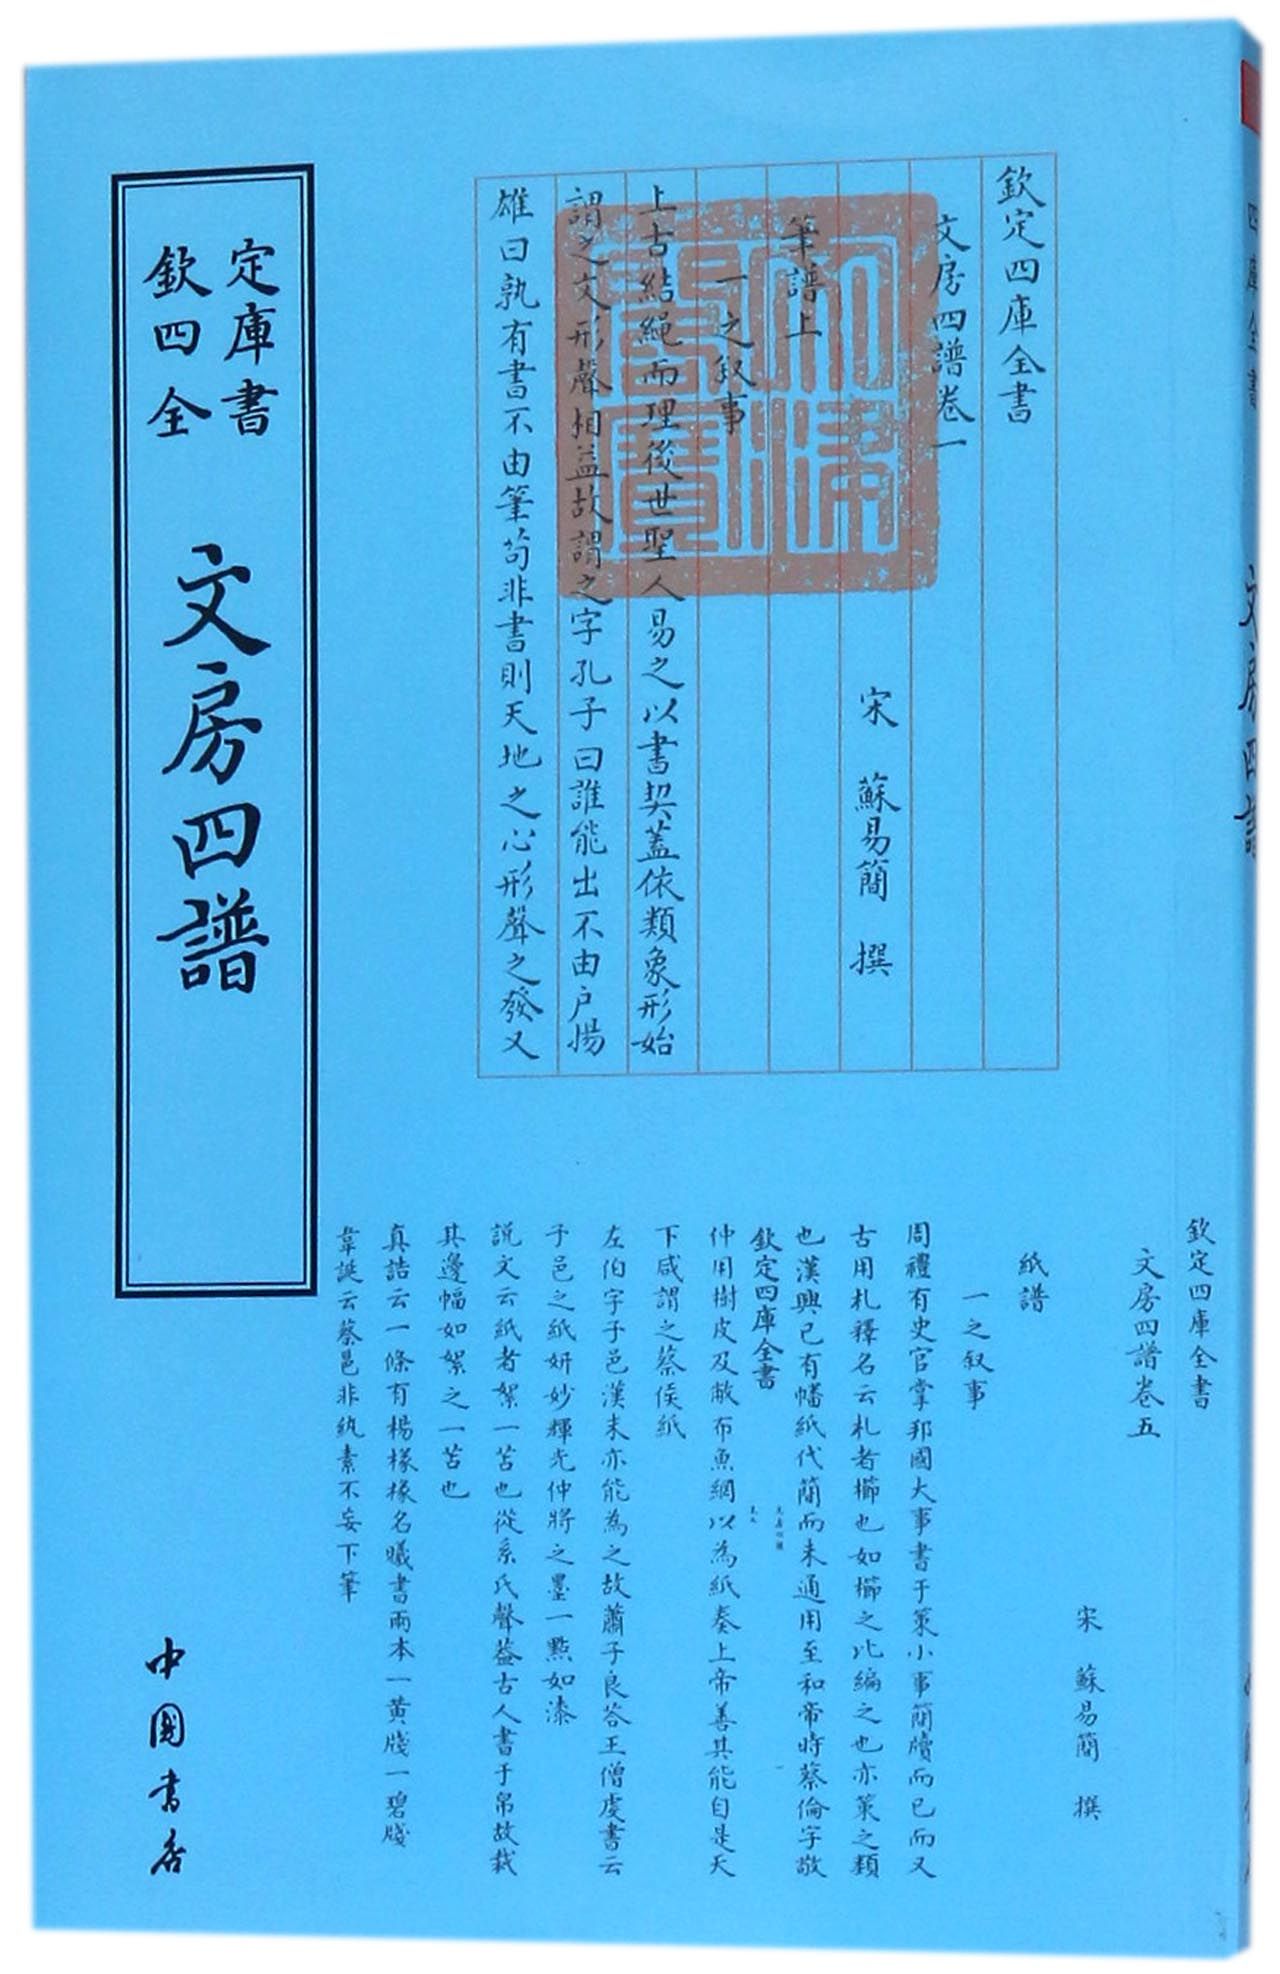 欽定
四庫
全書
文房四譜
欽定四庫全書
文房四譜卷一
宋 蘇易簡 撰
筆譜上
一之叙事
上古結繩而理後世聖人易之以書契蓋依類象形始
謂之文形聲相益故謂之字孔子曰誰能出不由戶揚
雄曰孰有書不由筆茍非書則天地之心形聲之發又
欽定四庫全書
文房四譜卷五
宋 蘇易簡 撰
紙譜
一之叙事
周禮有史官掌邦國大事書于策小事簡牘而已而又
古用札釋名云札者櫛也如櫛之比編之也亦策之類
也漢興已有幡紙代簡而未通用至和帝時蔡倫字敬
欽定四庫全書
仲用樹皮及敝布魚網以為紙奏上帝善其能自是天
下咸謂之蔡侯紙
左伯字子邑漢末亦能為之故蕭子良答王僧虔書云
子邑之紙妍妙輝光仲將之墨一點如漆
説文云紙者絮一苫也從糸氏聲蓋古人書于帛故裁
其邊幅如絮之一苫也
真誥云一條有楊掾掾名曦書兩本一黄牋一碧牋
韋誕云蔡邕非紈素不妄下筆
中國書店
四庫全書
文房四譜